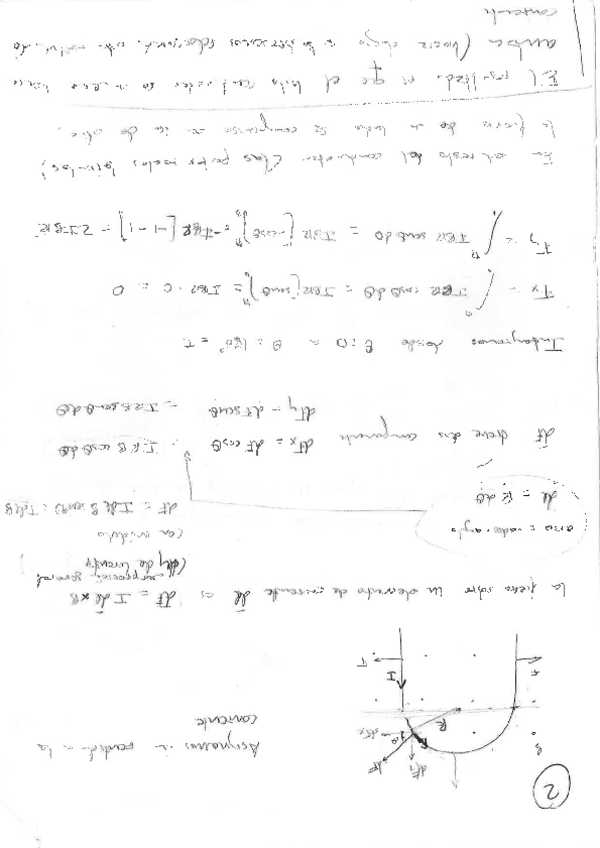 2
Asignamos un sentido a la
corriente
B
R
dF
dFy
dFx
θ
I
F
F
La fuerza sobre un elemento de corriente dl es dF = I dl × B
expresión general
(ley de Laplace)
con módulo
dF = I dl B sen 90 = I dl B
arco = radio · ángulo
dl = R dθ
dF tiene dos componentes dFx = dF cosθ = I R B cosθ dθ
dFy = dF senθ = I R B senθ dθ
Integramos desde θ = 0 a θ = 180° = π
Fx = ∫ IBR cosθ dθ = IBR [senθ] = IBR · 0 = 0
Fy = ∫ IBR senθ dθ = IBR [-cosθ] = -IBR [-1-1] = 2IBR
En el resto del conductor (las partes rectas laterales)
la fuerza de un lado se compensa con la de otro.
El resultado es que el hilo conductor se mueve hacia
arriba (hacia abajo si hubiéramos seleccionado otro sentido
corriente